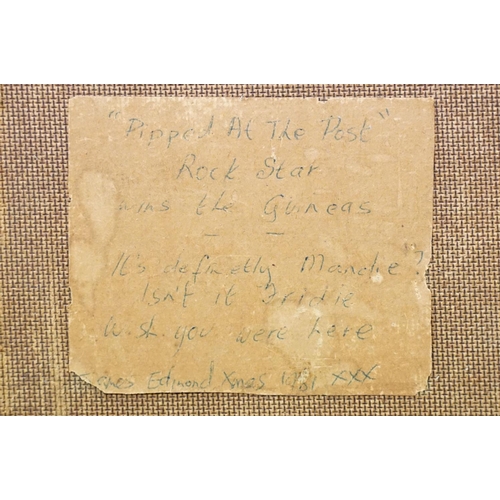 "Pipped At The Post"
Rock Star
wins the Guineas
It's definetly Mandie?
Isn't it Bridie
Wish you were here
James Edmond Xmas XXX